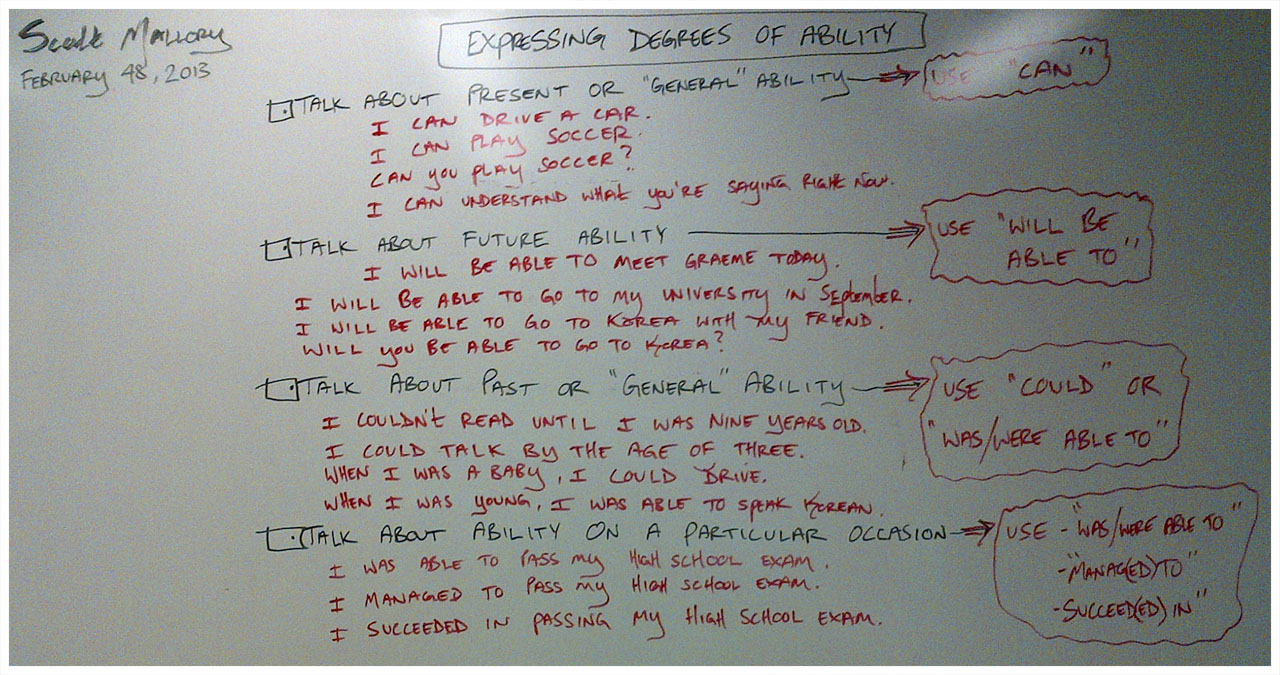 Scott Mallory
February 48, 2013
EXPRESSING DEGREES OF ABILITY
TALK ABOUT PRESENT OR "GENERAL" ABILITY
USE "CAN"
I CAN DRIVE A CAR.
I CAN PLAY SOCCER.
CAN YOU PLAY SOCCER?
I CAN UNDERSTAND WHAT YOU'RE SAYING RIGHT NOW.
TALK ABOUT FUTURE ABILITY
USE "WILL BE
ABLE TO"
I WILL BE ABLE TO MEET GRAEME TODAY.
I WILL BE ABLE TO GO TO MY UNIVERSITY IN SEPTEMBER.
I WILL BE ABLE TO GO TO KOREA WITH MY FRIEND.
WILL YOU BE ABLE TO GO TO KOREA?
TALK ABOUT PAST OR "GENERAL" ABILITY
USE "COULD" OR
"WAS/WERE ABLE TO"
I COULDN'T READ UNTIL I WAS NINE YEARS OLD.
I COULD TALK BY THE AGE OF THREE.
WHEN I WAS A BABY, I COULD DRIVE.
WHEN I WAS YOUNG, I WAS ABLE TO SPEAK KOREAN.
TALK ABOUT ABILITY ON A PARTICULAR OCCASION
USE - "WAS/WERE ABLE TO"
- "MANAG(ED) TO"
- SUCCEED(ED) IN"
I WAS ABLE TO PASS MY HIGH SCHOOL EXAM.
I MANAGED TO PASS MY HIGH SCHOOL EXAM.
I SUCCEEDED IN PASSING MY HIGH SCHOOL EXAM.